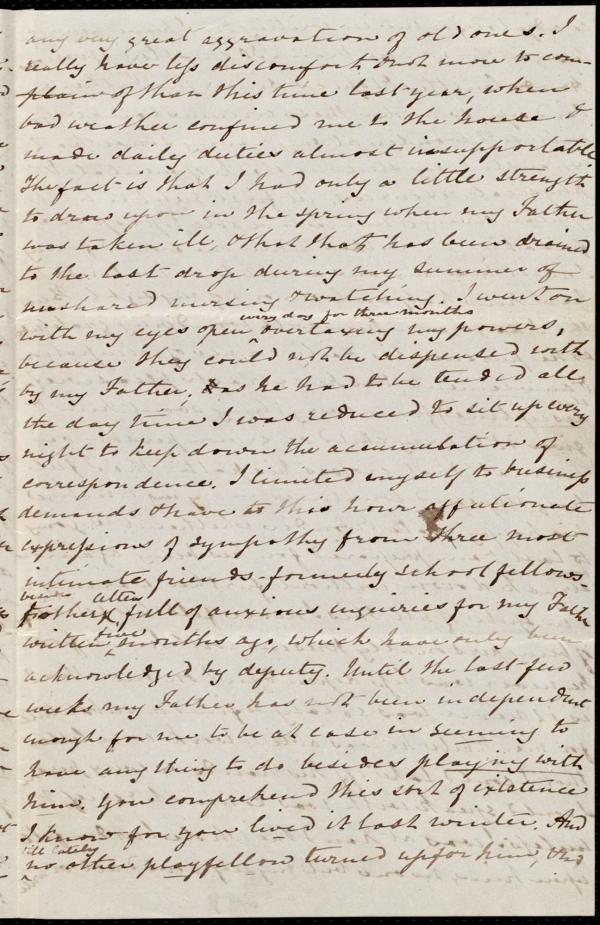 any very great aggravation of old ones. I
really have less discomfort & not more to com-
plain of than this time last year, when
bad weather confined me to the house &
made daily duties almost insupportable
The fact is that I had only a little strength
to draw upon in the spring when my Father
was taken ill, & that that has been drained
to the last drop during my summer of
unshared nursing & watching. I went on
every day for three months
with my eyes open overtaxing my powers,
because they could not be dispensed with
by my Father. As he had to be tended all
the day time I was reduced to sit up every
night to keep down the accumulation of
correspondence. I limited myself to business
demands & have to this hour affectionate
expressions of sympathy from three most
intimate friends - formerly school fellows -
& other letters full of anxious inquiries for my Father
written five months ago, which have only been
acknowledged by deputy. Until the last few
weeks my Father has not been independent
enough for me to be at ease in seeming to
have anything to do besides playing with
him. You comprehend this sort of existence
I know for you lived it last winter. And
till lately
no other playfellow turned up for him, and